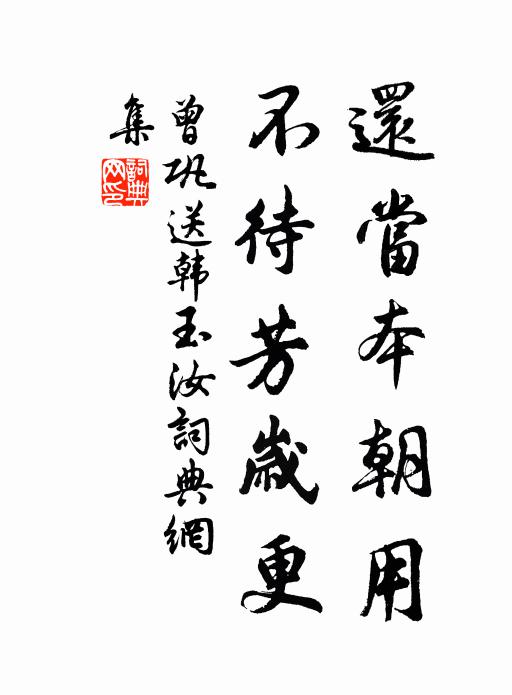 還當本朝用
不待芳歲更
曾巩送韩玉汝詞典網
集
詞典网印